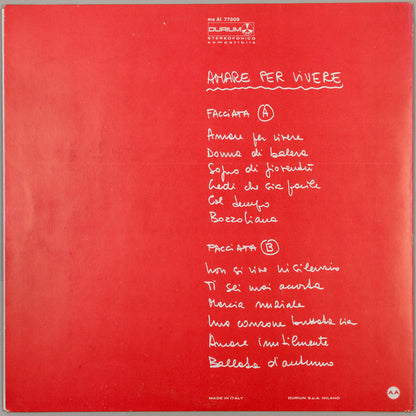 ms AI 77009
DURIUM
STEREOFONICO
compatibile
AMARE PER VIVERE
FACCIATA A
Amare per vivere
Donna di balera
Sogno di gioventù
Credi che sia facile
Col tempo
Bozzoliana
FACCIATA B
Non si vive in silenzio
Ti sei mai accorta
Marcia nuziale
Una canzone buttata via
Amare inutilmente
Ballata d'autunno
MADE IN ITALY
DURIUM S.p.A. MILANO